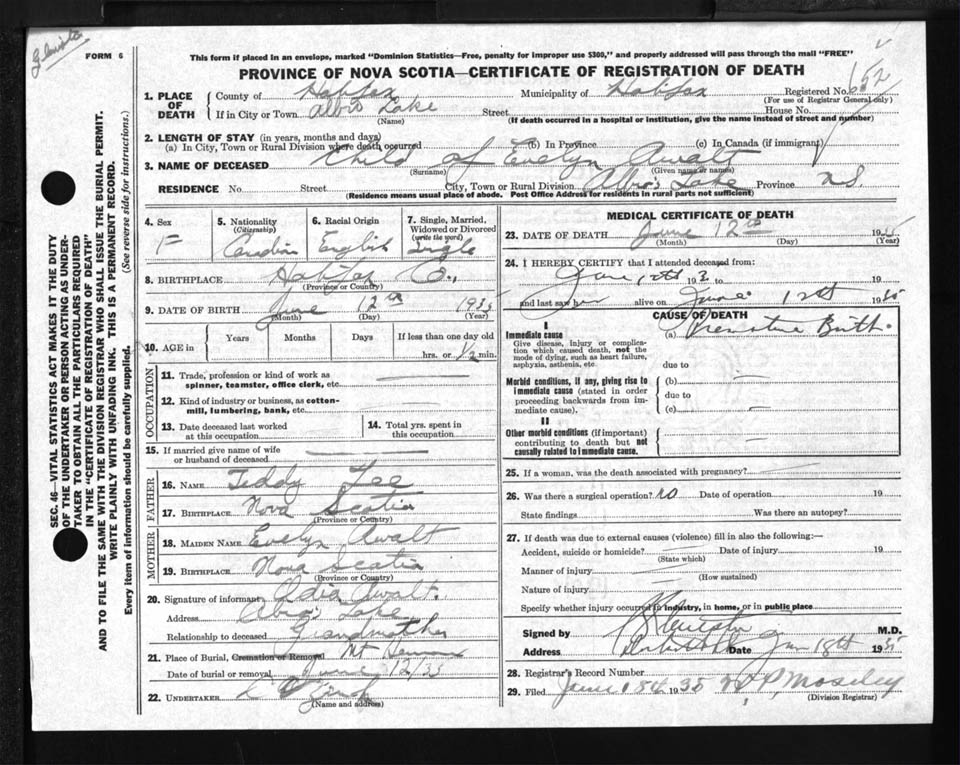 FORM 6
This form if placed in an envelope, marked "Dominion Statistics—Free, penalty for improper use $300," and properly addressed will pass through the mail "FREE"
PROVINCE OF NOVA SCOTIA—CERTIFICATE OF REGISTRATION OF DEATH
1. PLACE OF DEATH
County of Halifax Municipality of Halifax Registered No. 652
(For use of Registrar General only)
If in City or Town Albro Lake Street House No.
(Name) (If death occurred in a hospital or institution, give the name instead of street and number)
2. LENGTH OF STAY (in years, months and days)
(a) In City, Town or Rural Division where death occurred (b) In Province (c) In Canada (if immigrant)
3. NAME OF DECEASED Child of Evelyn Awalt
(Surname) (Given name or names)
RESIDENCE No. Street City, Town or Rural Division Albro's Lake Province N.S.
(Residence means usual place of abode. Post Office Address for residents in rural parts not sufficient)
4. Sex F
5. Nationality (Citizenship) Canadian
6. Racial Origin English
7. Single, Married, Widowed or Divorced (write the word) Single
8. BIRTHPLACE Halifax Co.,
(Province or Country)
9. DATE OF BIRTH June 12th 1935
(Month) (Day) (Year)
10. AGE in Years Months Days If less than one day old
hrs. or 1/2 min.
OCCUPATION
11. Trade, profession or kind of work as spinner, teamster, office clerk, etc.
12. Kind of industry or business, as cotton-mill, lumbering, bank, etc.
13. Date deceased last worked at this occupation
14. Total yrs. spent in this occupation
15. If married give name of wife or husband of deceased
FATHER
16. NAME Teddy Lee
17. BIRTHPLACE Nova Scotia
(Province or Country)
MOTHER
18. MAIDEN NAME Evelyn Awalt
19. BIRTHPLACE Nova Scotia
(Province or Country)
20. Signature of informant Awalt.
Address Albro's Lake
Relationship to deceased Grandmother
21. Place of Burial, Cremation or Removal Mt Hermon
Date of burial or removal June 12/35
22. UNDERTAKER
(Name and address)
MEDICAL CERTIFICATE OF DEATH
23. DATE OF DEATH June 12th 1935
(Month) (Day) (Year)
24. I HEREBY CERTIFY that I attended deceased from:
June 12th 193 to 19
and last saw her alive on June 12th 1935
CAUSE OF DEATH
I
Immediate cause
Give disease, injury or complication which caused death, not the mode of dying, such as heart failure, asphyxia, asthenia, etc.
(a) Premature Birth.
due to
Morbid conditions, if any, giving rise to immediate cause (stated in order proceeding backwards from immediate cause).
(b) —
due to
(c) —
II
Other morbid conditions (if important) contributing to death but not causally related to immediate cause.
25. If a woman, was the death associated with pregnancy?
26. Was there a surgical operation? NO Date of operation 19
State findings Was there an autopsy?
27. If death was due to external causes (violence) fill in also the following:—
Accident, suicide or homicide? Date of injury 19
(State which)
Manner of injury
(How sustained)
Nature of injury
Specify whether injury occurred in industry, in home, or in public place
Signed by M.D.
Address Date 18th 1935
28. Registrar's Record Number
29. Filed June 1935 Moseley
(Division Registrar)
SEC. 46—VITAL STATISTICS ACT MAKES IT THE DUTY
OF THE UNDERTAKER OR PERSON ACTING AS UNDER-
TAKER TO OBTAIN ALL THE PARTICULARS REQUIRED
IN THE "CERTIFICATE OF REGISTRATION OF DEATH"
AND TO FILE THE SAME WITH THE DIVISION REGISTRAR WHO SHALL ISSUE THE BURIAL PERMIT.
WRITE PLAINLY WITH UNFADING INK. THIS IS A PERMANENT RECORD.
Every item of information should be carefully supplied. (See reverse side for instructions.)